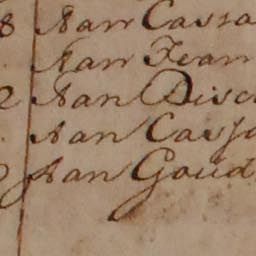 8 Aan Cassa
Aan Fran
2 Aan Disc
Aan Cass
Aan Goud